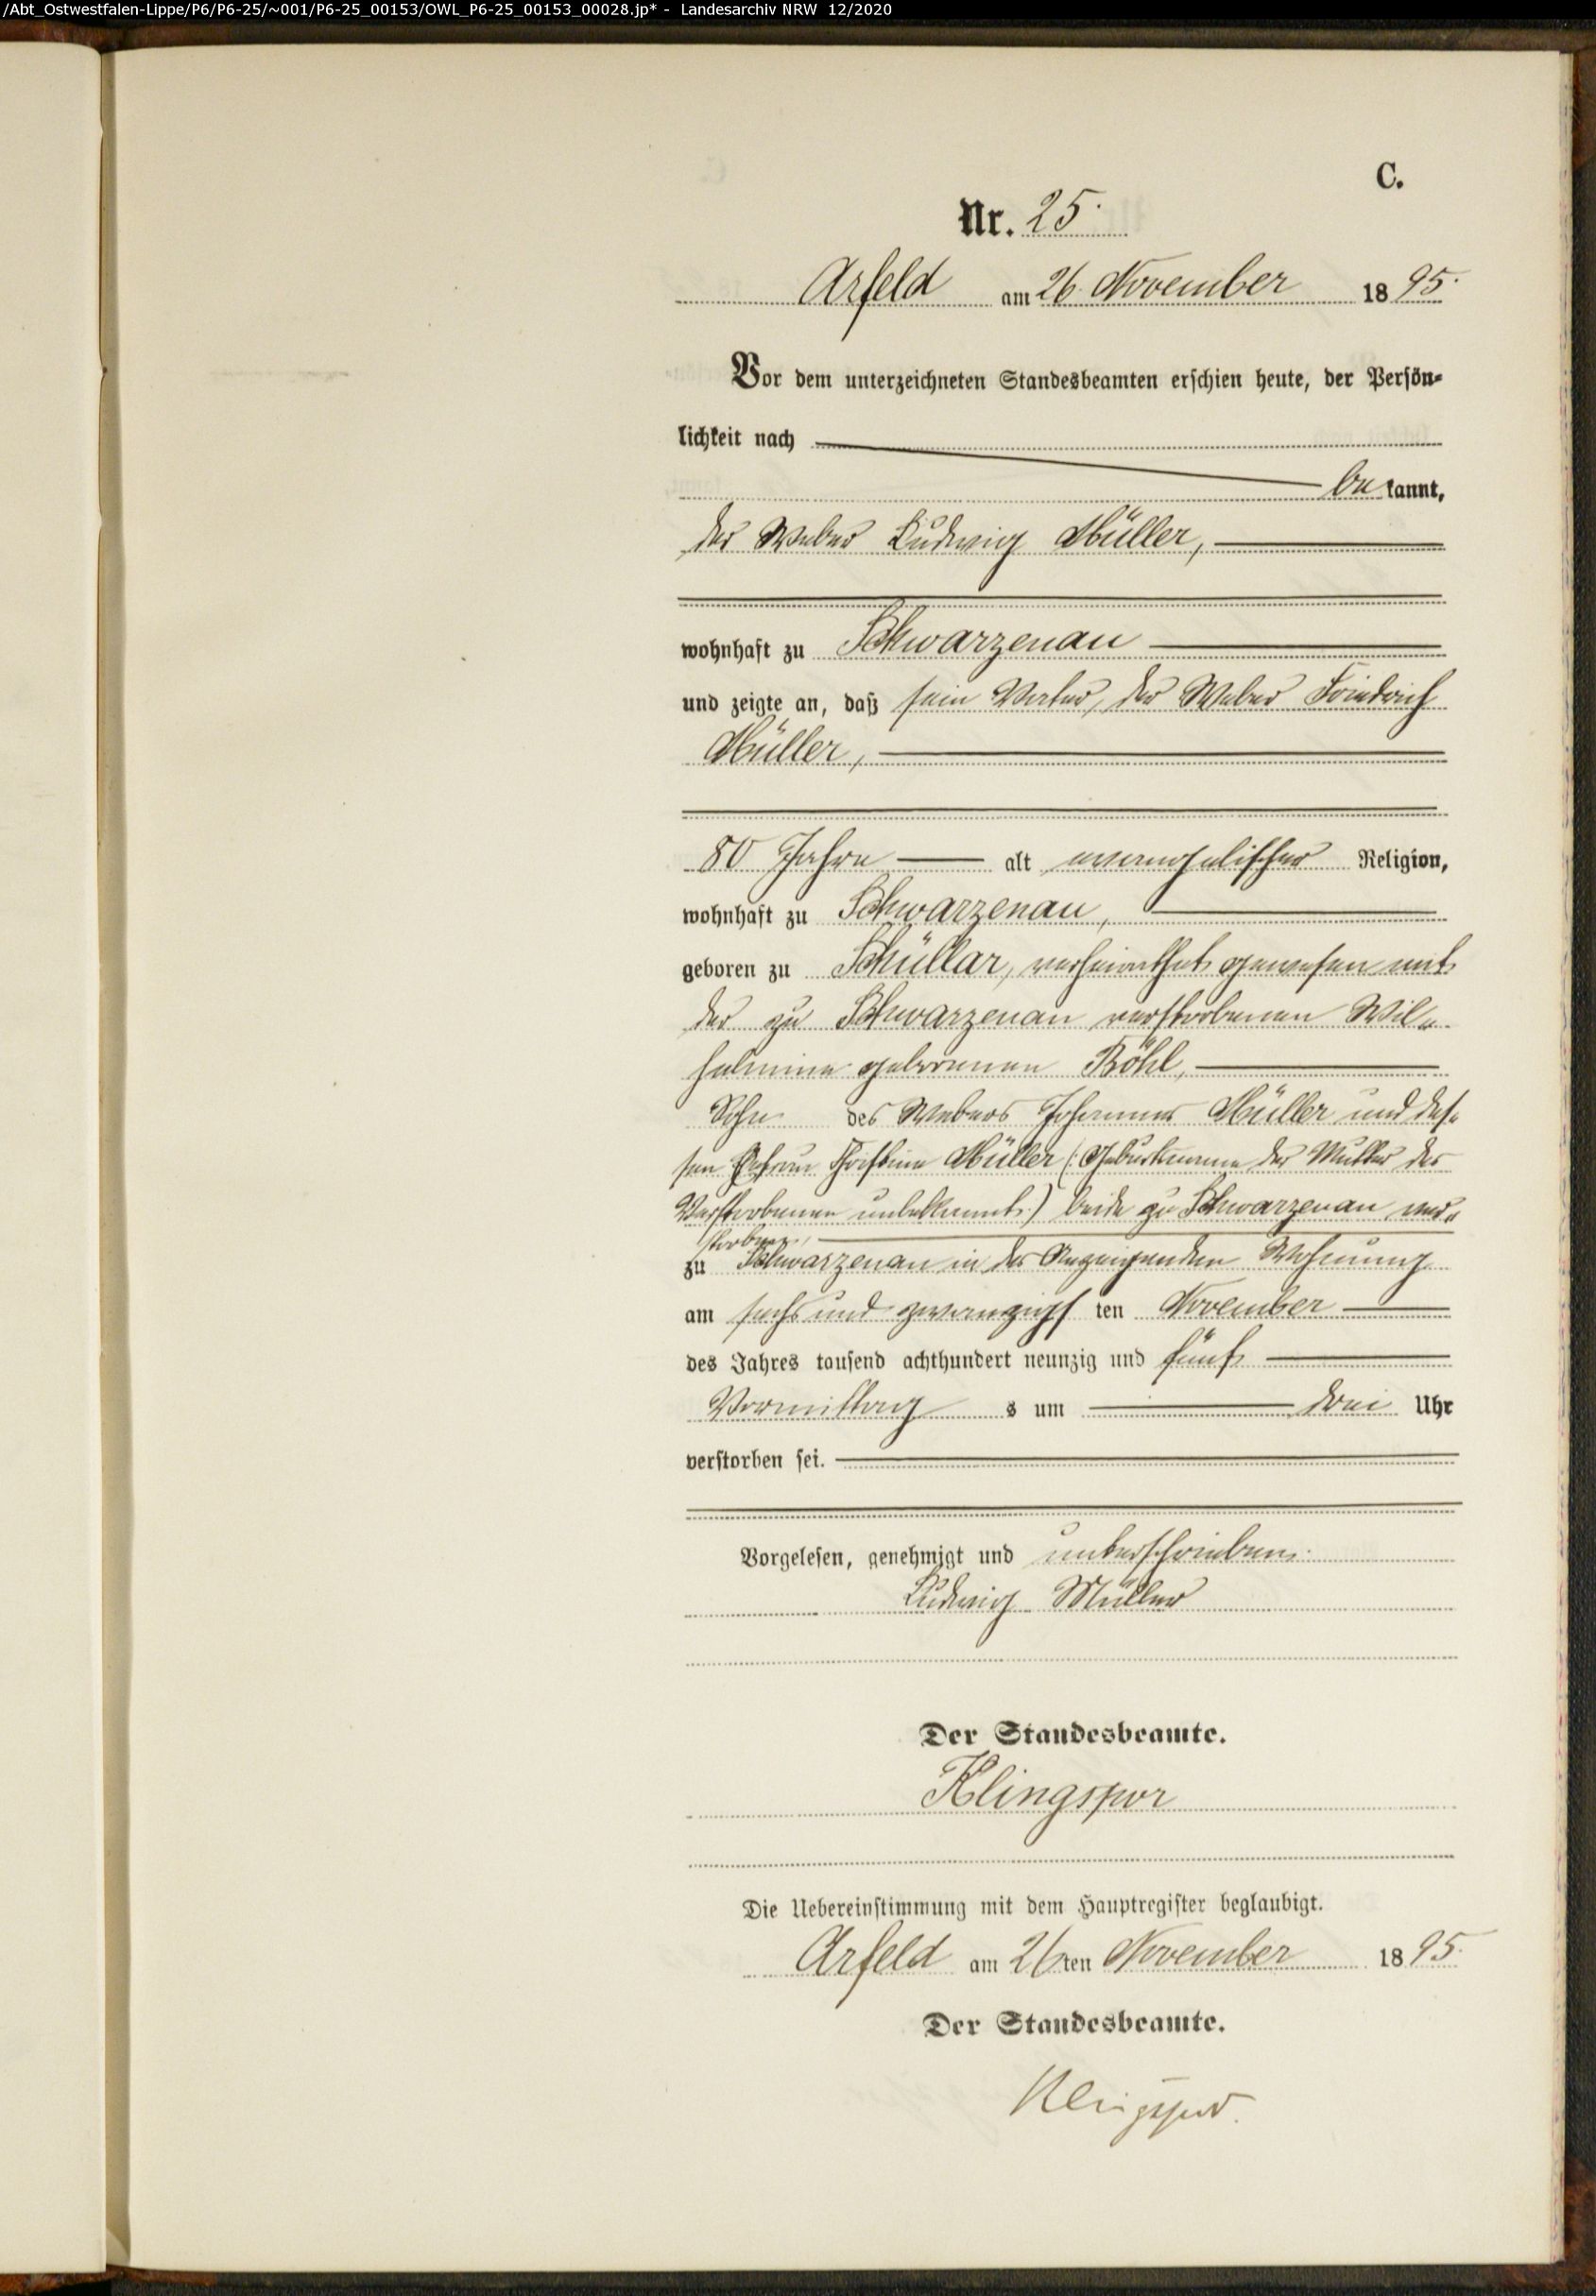 /Abt_Ostwestfalen-Lippe/P6/P6-25/~001/P6-25_00153/OWL_P6-25_00153_00028.jp* - Landesarchiv NRW 12/2020
C.
Nr. 25.
Arfeld am 26. November 1895.
Vor dem unterzeichneten Standesbeamten erschien heute, der Persön-
lichkeit nach
bekannt,
der Weber Ludwig Müller,
wohnhaft zu Schwarzenau
und zeigte an, daß sein Vater, der Weber Friedrich
Müller,
80 Jahre alt evangelischer Religion,
wohnhaft zu Schwarzenau,
geboren zu Schüllar, verheirathet gewesen mit
der zu Schwarzenau verstorbenen Wil-
helmine geborenen Böhl,
Sohn des Webers Johannes Müller und des-
sen Ehefrau Christine Müller (: Geburtsname der Mutter des
Verstorbenen unbekannt.) beide zu Schwarzenau ver-
storben,
zu Schwarzenau in der Anzeigenden Wohnung
am sechs und zwanzigsten November
des Jahres tausend achthundert neunzig und fünf
Vormittags um drei Uhr
verstorben sei.
Vorgelesen, genehmigt und unterschrieben.
Ludwig Müller
Der Standesbeamte.
Klingspor
Die Uebereinstimmung mit dem Hauptregister beglaubigt.
Arfeld am 26ten November 1895.
Der Standesbeamte.
Klingspor.